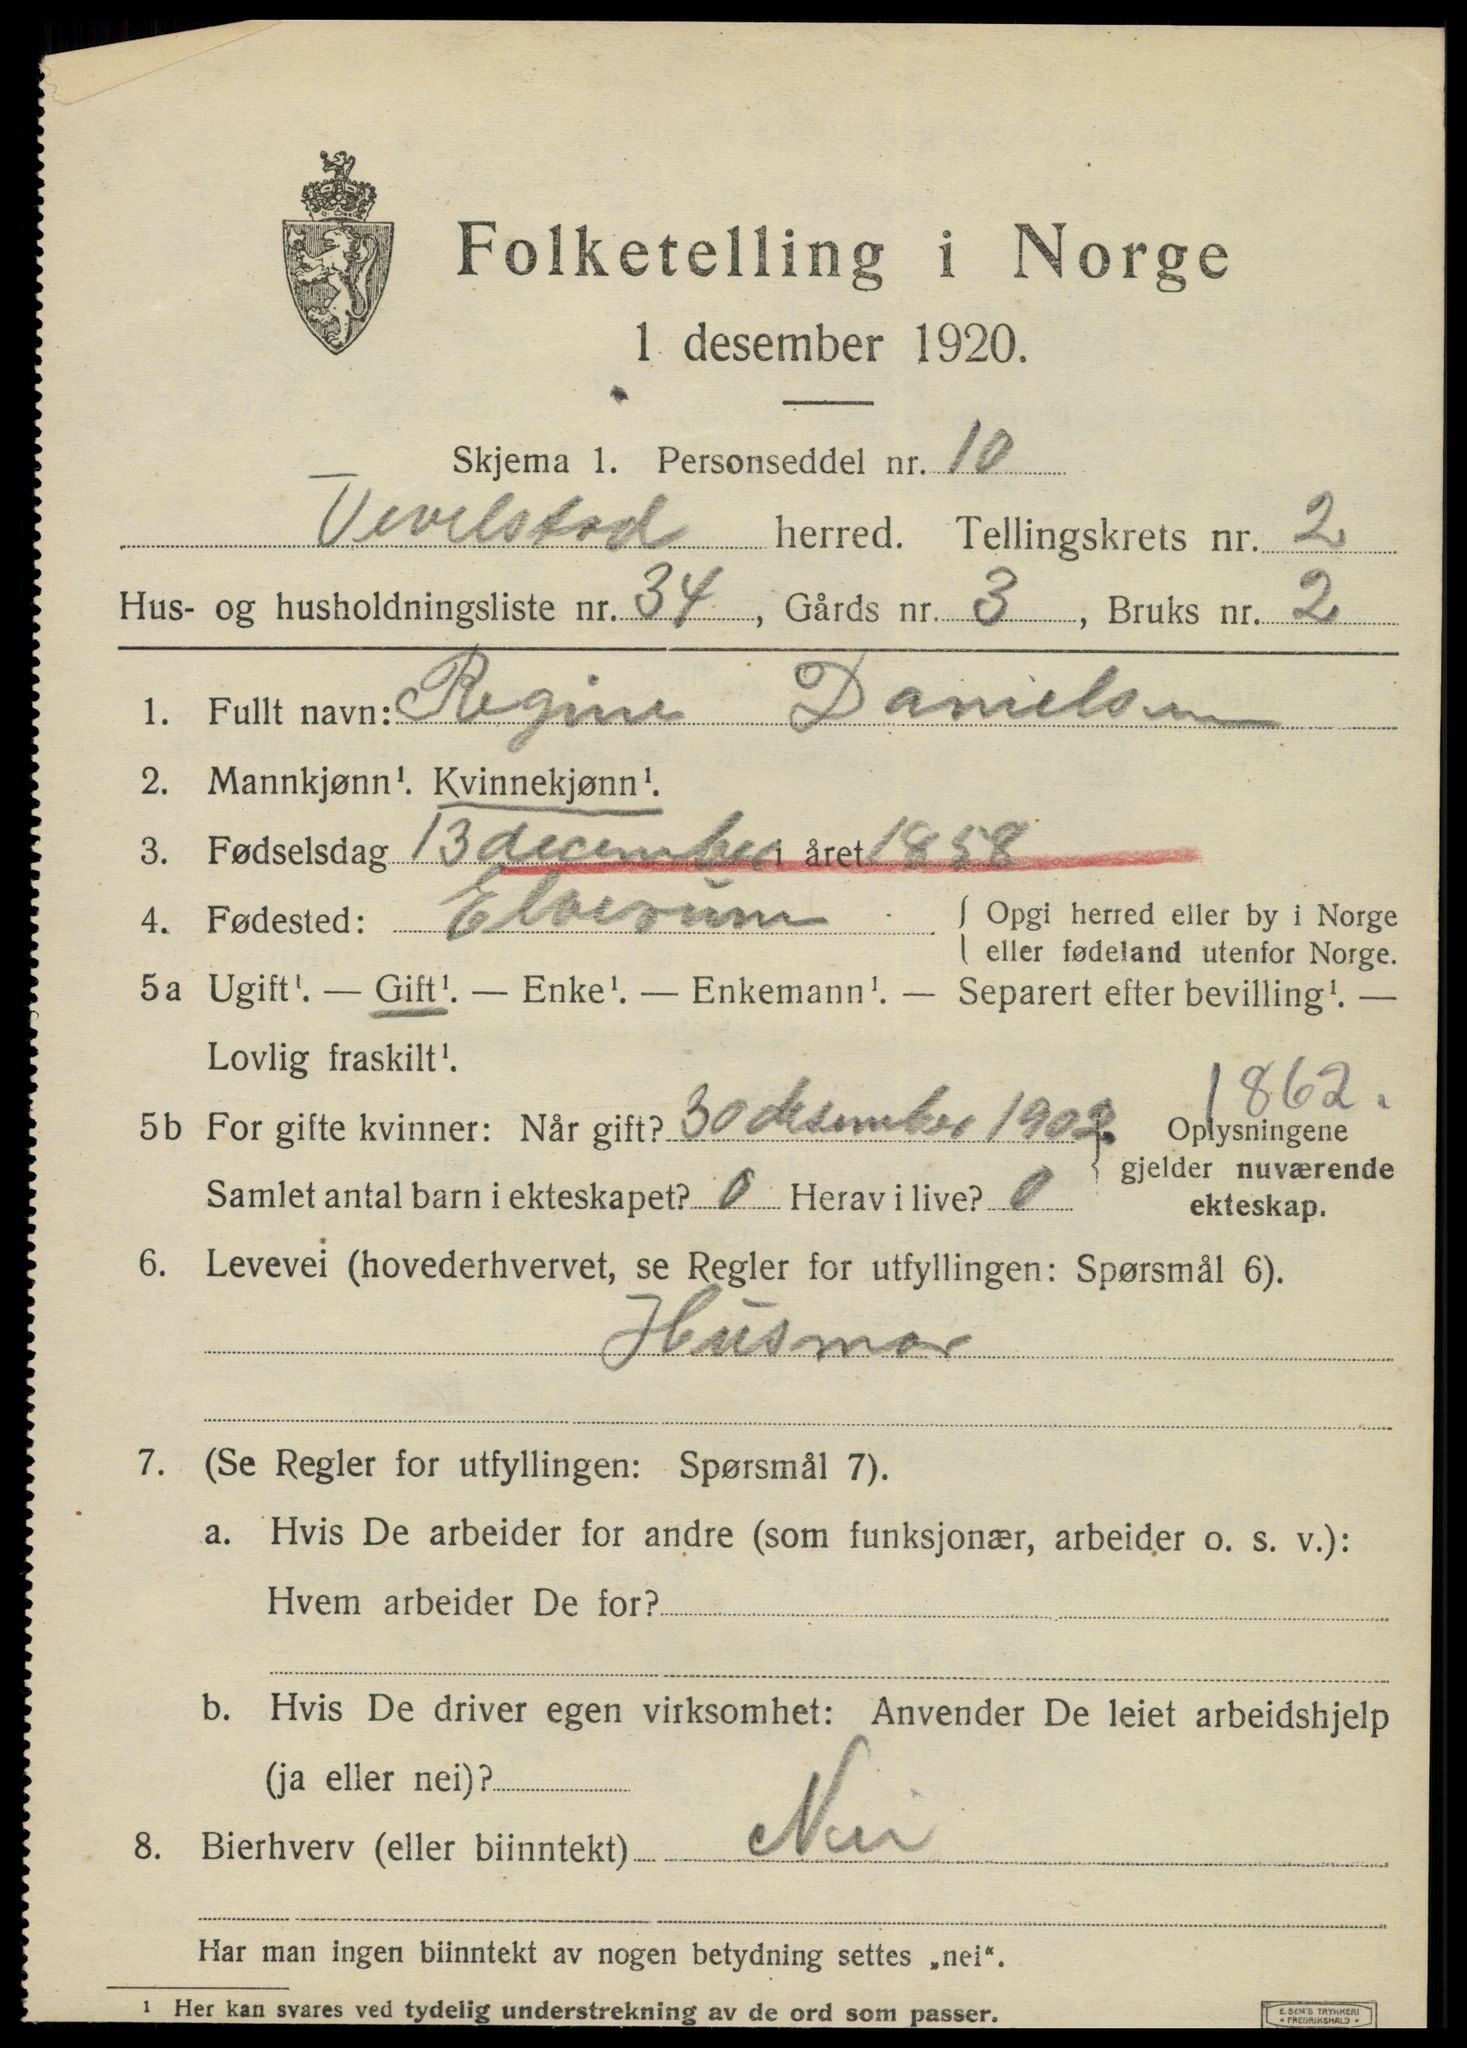 Folketelling i Norge
1 desember 1920.
Skjema 1. Personseddel nr. 10
Vevelstad herred. Tellingskrets nr. 2
Hus- og husholdningsliste nr. 34, Gårds nr. 3, Bruks nr. 2
1. Fullt navn: Regine Danielsen
2. Mannkjønn¹. Kvinnekjønn¹.
3. Fødselsdag 13 december i året 1858
4. Fødested: Elverum { Opgi herred eller by i Norge
eller fødeland utenfor Norge.
5a Ugift¹. — Gift¹. — Enke¹. — Enkemann¹. — Separert efter bevilling¹. —
Lovlig fraskilt¹.
1862.
5b For gifte kvinner: Når gift? 30 desember 1902. { Oplysningene
gjelder nuværende
Samlet antal barn i ekteskapet? 0 Herav i live? 0 ekteskap.
6. Levevei (hovederhvervet, se Regler for utfyllingen: Spørsmål 6).
Husmor
7. (Se Regler for utfyllingen: Spørsmål 7).
a. Hvis De arbeider for andre (som funksjonær, arbeider o. s. v.):
Hvem arbeider De for?
b. Hvis De driver egen virksomhet: Anvender De leiet arbeidshjelp
(ja eller nei)?
8. Bierhverv (eller biinntekt) Nei
Har man ingen biinntekt av nogen betydning settes „nei“.
¹ Her kan svares ved tydelig understrekning av de ord som passer.
E. SEM'S TRYKKERI
• FREDRIKSHALD •